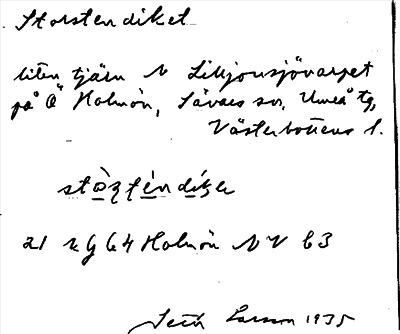 Storstendiket
liten tjärn N Liljonsjövarpet
på Ö Holmön, Sävars sn, Umeå tg,
Västerbottens l.
21 K g 64 Holmön NV b3
Larson 1935